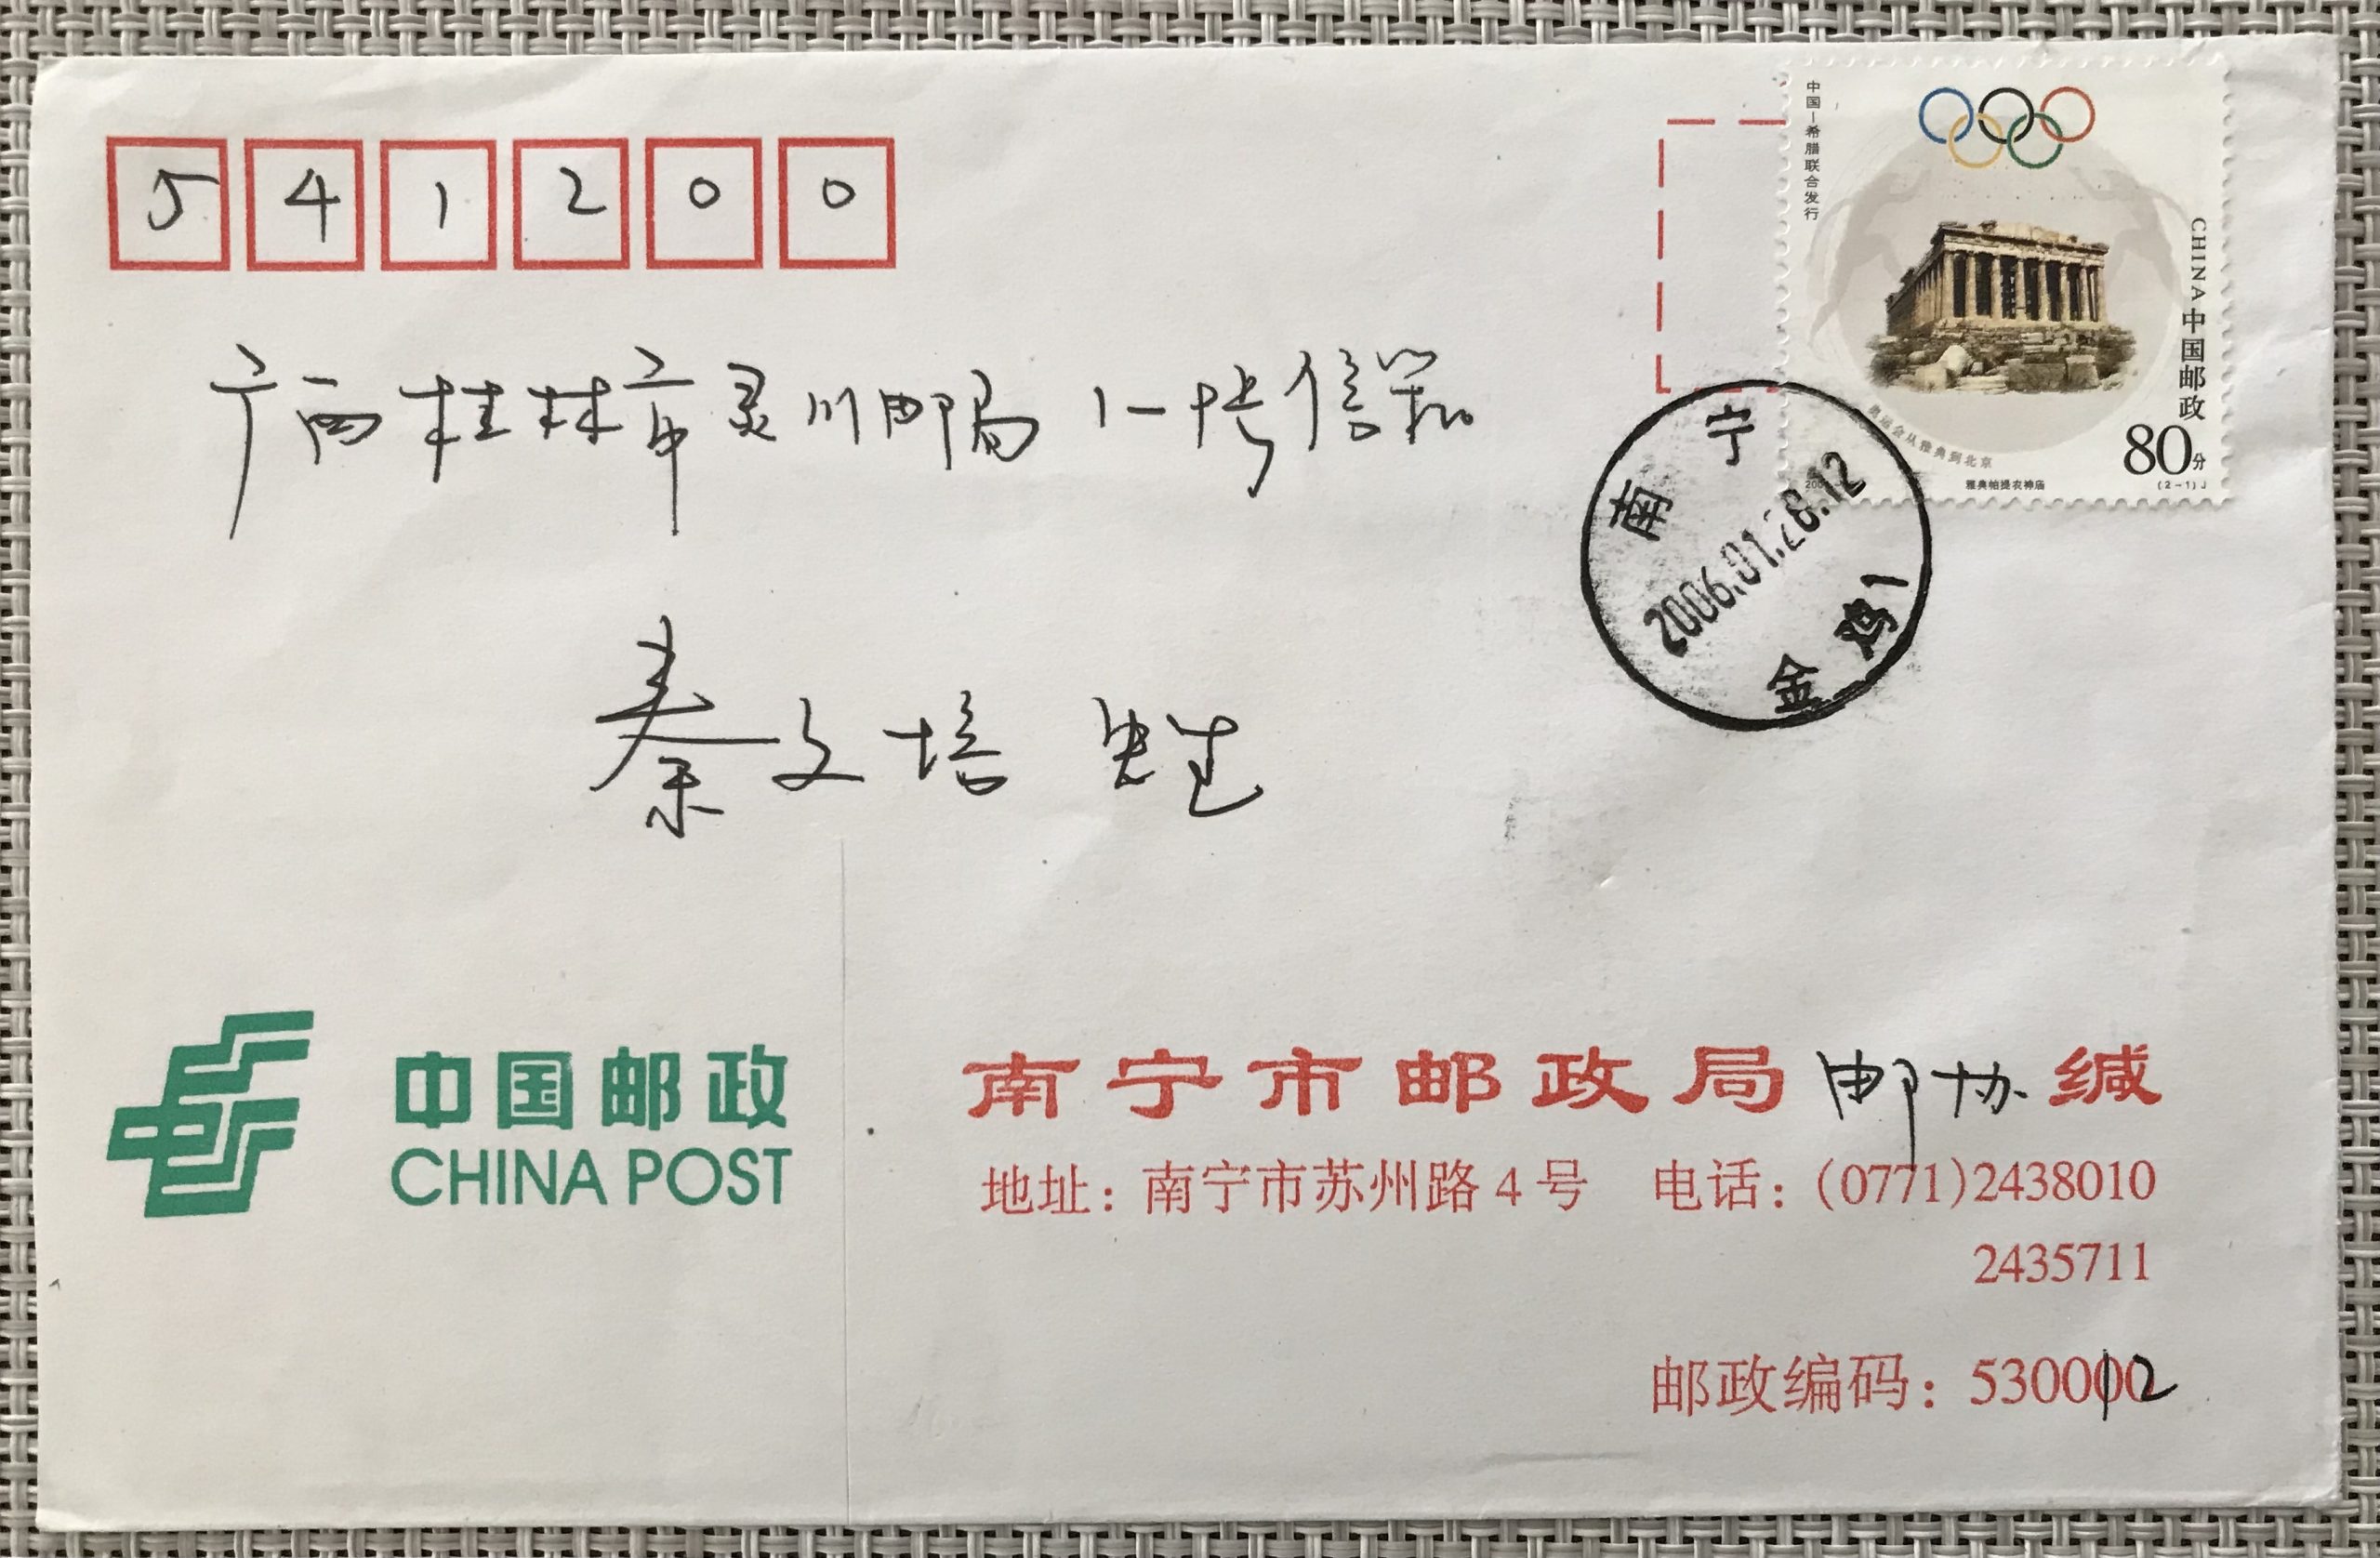 541200
中国-希腊联合发行
CHINA 中国邮政
奥运会从雅典到北京
80分
雅典帕提农神庙
(2-1)J
广西桂林市灵川邮局1一号信箱
南宁
2006.01.28.12
金鸡1
秦文培 先生
中国邮政
CHINA POST
南宁市邮政局邮协缄
地址：南宁市苏州路4号 电话：(0771)2438010
2435711
邮政编码：530012